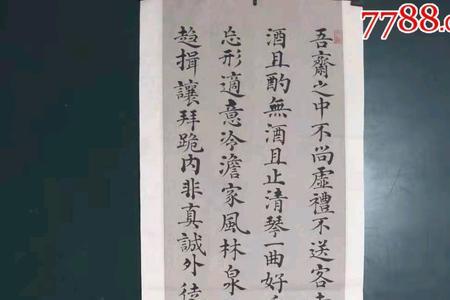 7788.c
吾齋之中不尚虛禮不送客
酒且酌無酒且止清琴一曲好
忘形適意冷澹家風林泉
趋揖讓拜跪内非真誠外徒